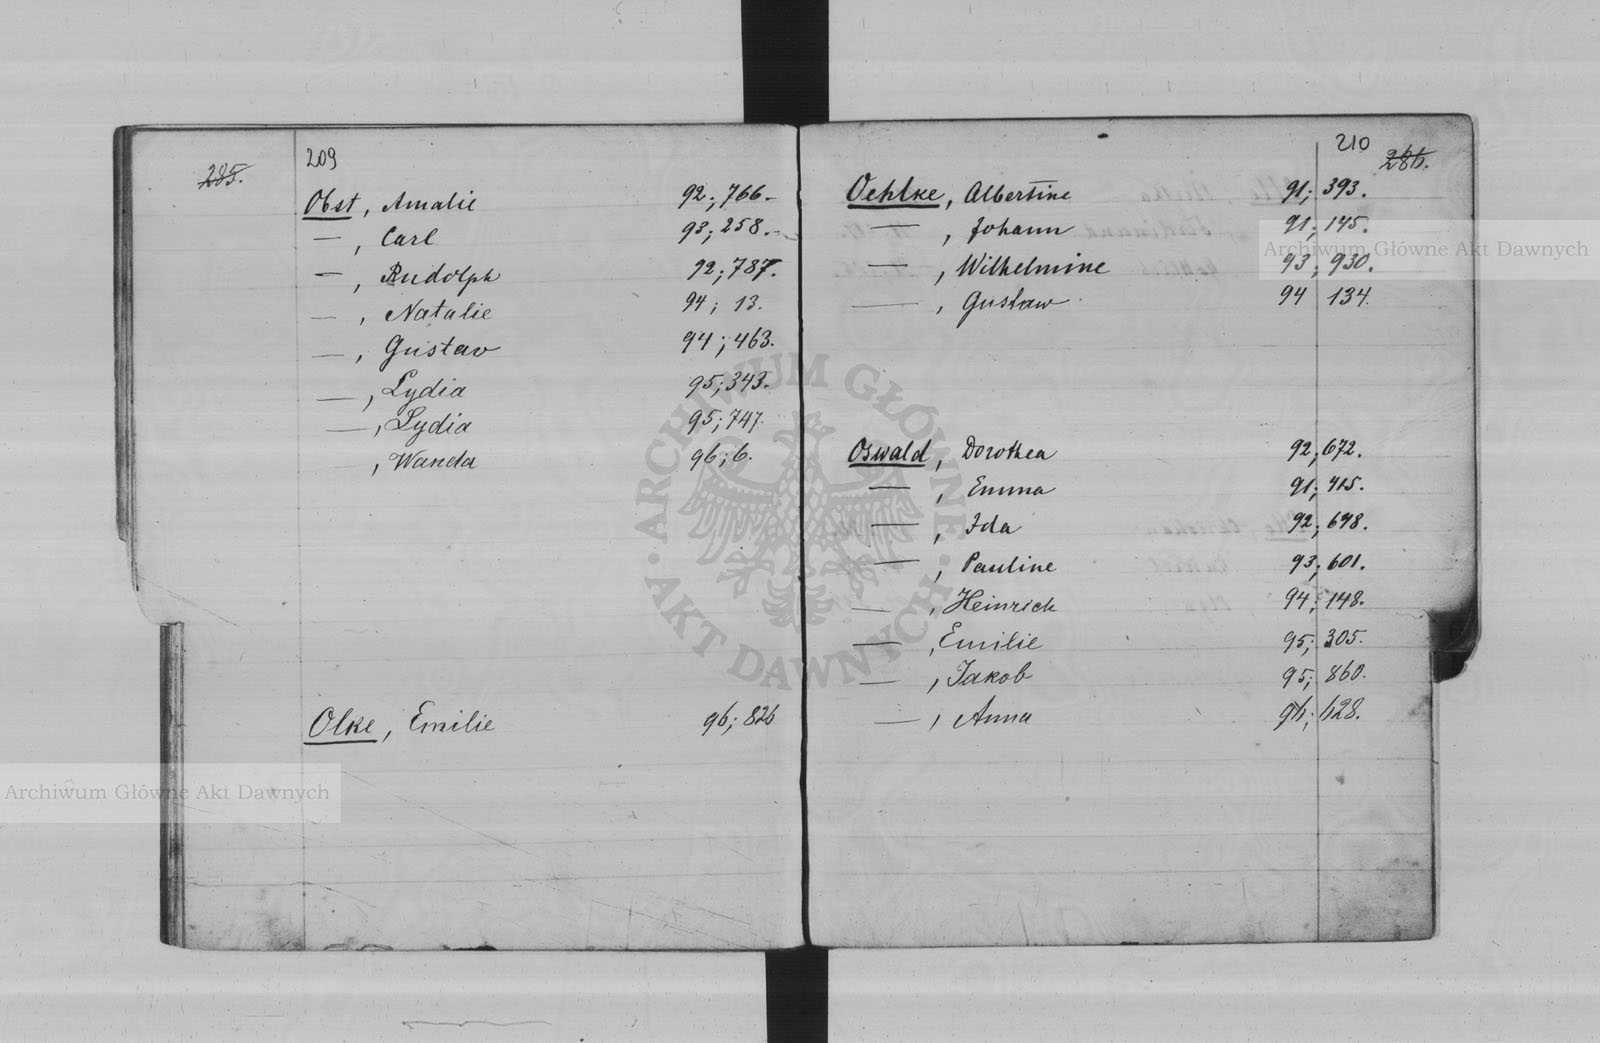 285.
209
Obst, Amalie 92; 766.
— , Carl 93; 258.
— , Rudolph 92; 787.
— , Natalie 94; 13.
— , Gustav 94; 463.
— , Lydia 95; 343.
— , Lydia 95; 747.
, Wanda 96; 6.
Olke, Emilie 96; 826
210
286.
Oehlke, Albertine 91; 393.
— , Johann 91; 145.
— , Wilhelmine 93; 930.
— , Gustaw 94 134.
Oswald, Dorothea 92; 672.
— , Emma 91; 415.
— , Ida 92; 678.
— , Pauline 93; 601.
— , Heinrich 94; 148.
— , Emilie 95; 305.
— , Jakob 95; 860.
— , Anna 96; 628.
Archiwum Główne Akt Dawnych
Archiwum Główne Akt Dawnych
ARCHIWUM GŁÓWNE AKT DAWNYCH